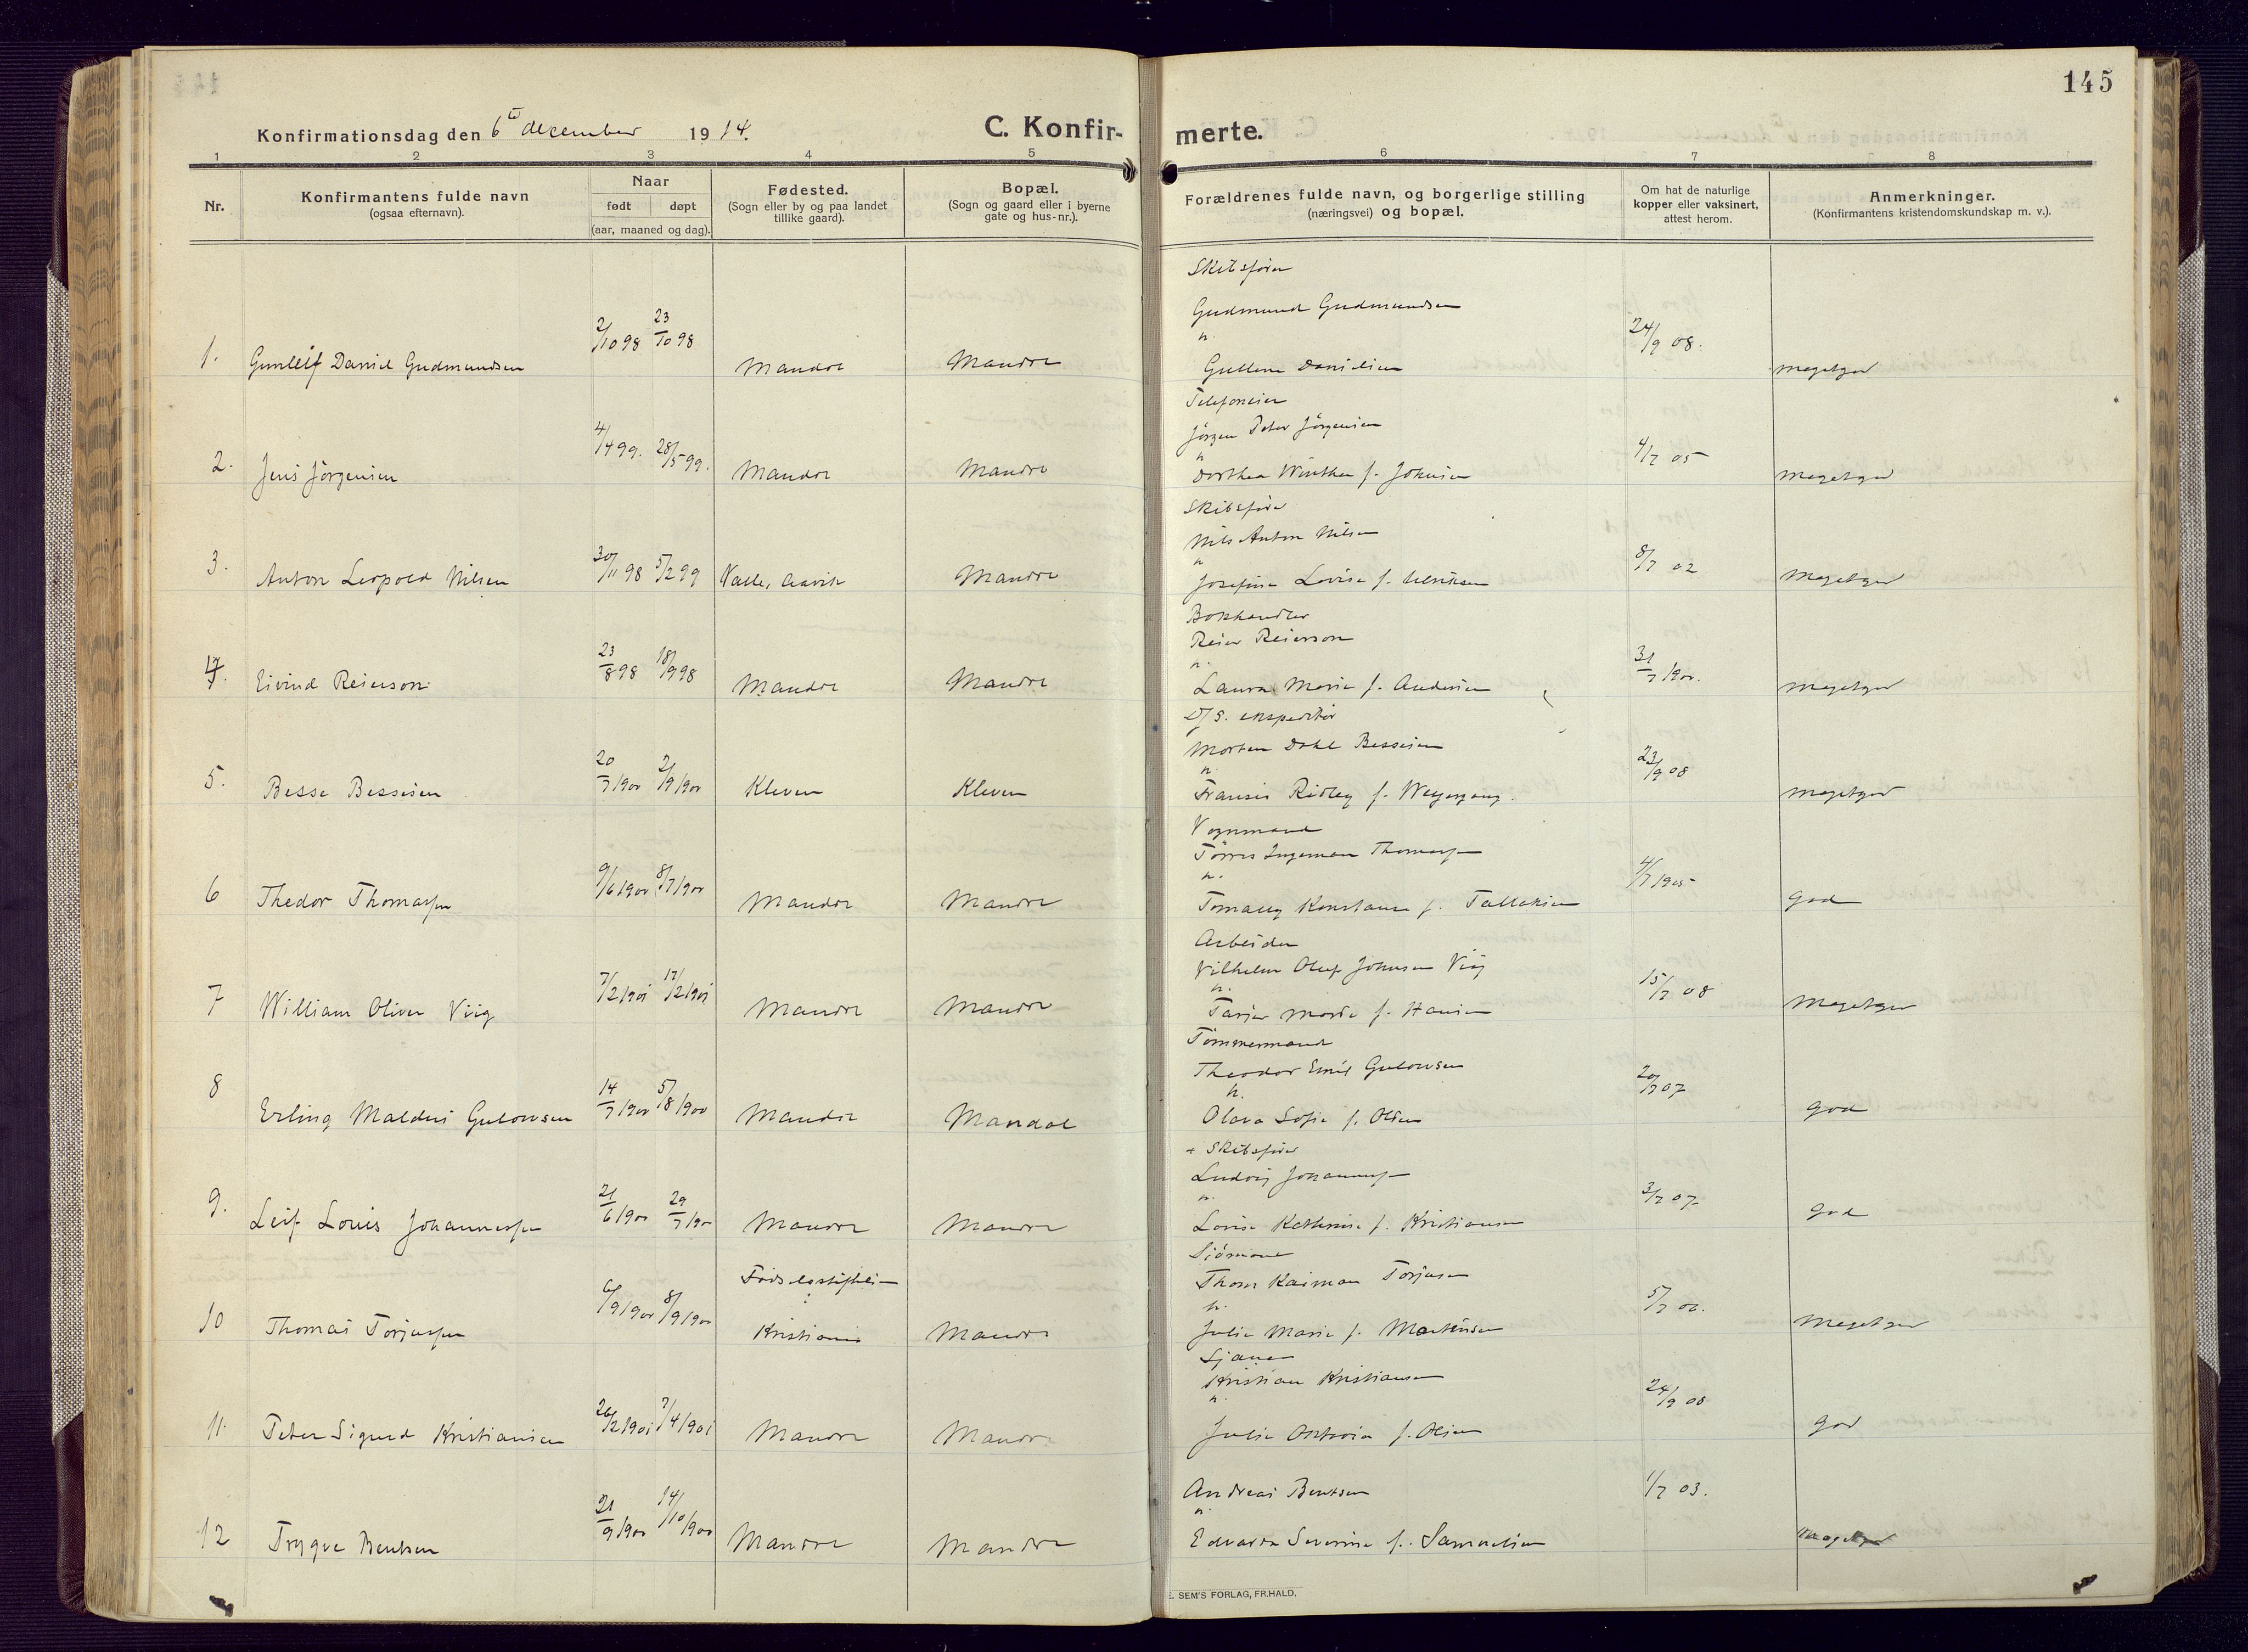 145
Konfirmationsdag den 6te december 1914.
C. Konfir-
merte.
1 2 3 4 5 6 7 8
Nr.
Konfirmantens fulde navn
(ogsaa efternavn).
Naar
født døpt
(aar, maaned og dag).
Fødested.
(Sogn eller by og paa landet
tillike gaard).
Bopæl.
(Sogn og gaard eller i byerne
gate og hus-nr.).
Forældrenes fulde navn, og borgerlige stilling
(næringsvei) og bopæl.
Om hat de naturlige
kopper eller vaksinert,
attest herom.
Anmerkninger.
(Konfirmantens kristendomskundskap m. v.).
Skibsfører
Gudmund Gudmundsen
1. Gunleif Daniel Gudmundsen 2/10 98 23/10 98 Mandal Mandal Danielsen 24/9 08. megetgod
Jörgen Peter Jörgensen
2. Jens Jörgensen 4/4 99. 28/5 99. Mandal Mandal Dorthea f. Johnsen 4/7 05 megetgod
Skibsfører
Nils Anton Nilsen
3. Anton Leopold Nilsen 30/11 98 5/2 99 Valle, Mandal Josefine Lovise f. 8/7 02 megetgod
Bokhandler
Reier Reierson
4. Eivind Reierson 23/8 98 18/9 98 Mandal Mandal Laura Marie f. Andersen 31/7 1900. megetgod
D/S. ekspeditör
Morten Dahl Bessesen
5. Besse Bessesen 20/7 1900 2/9 1900 Kleven Kleven Ridley f. Weyergang. 23/9 08 megetgod
Vognmand
Törres Ingeman Thomassen
6 Thedor Thomassen 9/6 1900 8/7 1900 Mandal Mandal Konstance f. Tallaksen 4/7 1905 god
Arbeider
Vilhelm Oluf Johnsen Viig
7 William Oliver Viig 7/2 1901 17/2 1901 Mandal Mandal f. Hansen 15/7 08 Megetgod
Tömmermand
Theodor Emil Gulowsen
8 Erling Gulowsen 14/7 1900 5/8 1900 Mandal Mandal Olava Sofie f. Olsen 20/7 07 god
+ Skibsfører
Ludvig Johannessen
9. Leif Louis Johannessen 21/6 1900 29/7 1900 Mandal Mandal Lovise Kathrine f. Kristiansen 3/7 07 god
Sjömand
Fødselsstiftelsen Thom Torjusen
10 Thomas Torjussen 6/9 1900 8/9 1900 Kristiania Mandal Julie Marie f. Martinsen 5/7 megetgod
Kristian Kristiansen
11. Peter Sigurd Kristiansen 26/2 1901 7/4 1901 Mandal Mandal Julie Oktavia f. Olsen 24/9 08 god
Andreas Bentsen
12 Trygve Bentsen 21/9 1900 14/10 1900 Mandal Mandal Edvarda Severine f. Samuelsen 1/7 03. megetgod
E. SEM'S FORLAG, FR.HALD.